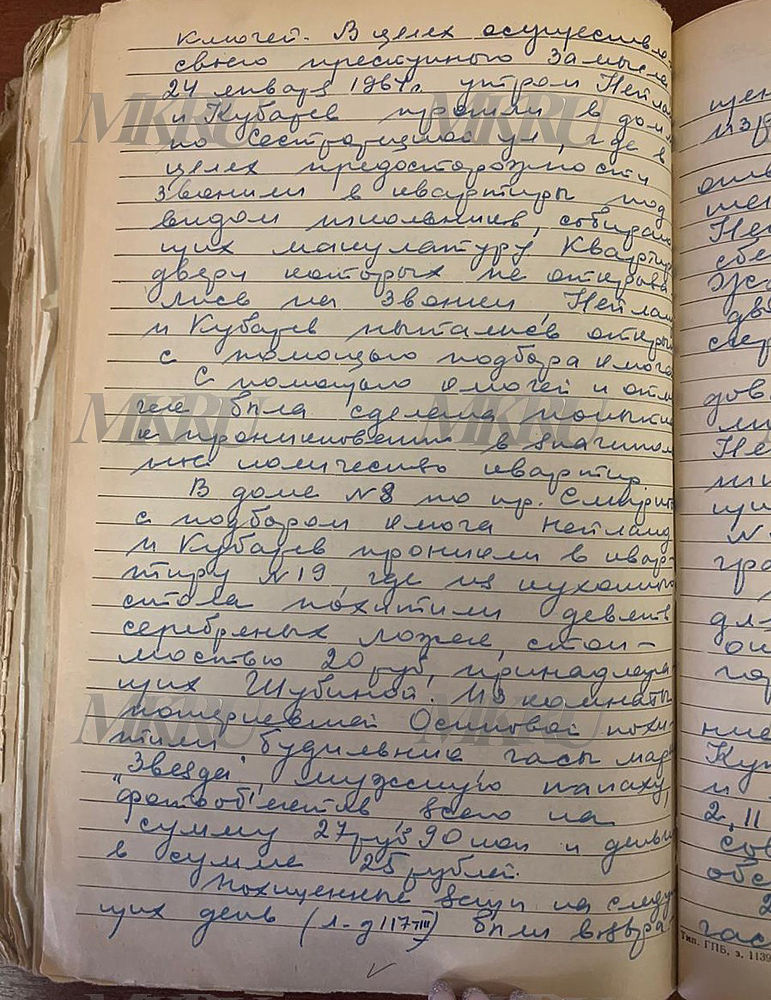 ключей. В целех осуществле
своего преступного замысла
24 января 1964г. утром Нейлан
и Кубарев пришли в дом
по Сестрорецкой ул, где в
целех предосторожности
звонили в квартиры под
видом школьников, собираю
щих макулатуру. Квартиры
двери которых не открыва
лись на звонки, Нейлан
и Кубарев пытались откры
с помощью подбора ключа
С помощью ключей и отм
чек была сделана попытка
к проникновении в значител
ное количество квартир.
В доме №8 по пр. Смирно
с подбором ключа Нейланд
и Кубарев проникли в квар-
тиру №19 где из кухонного
стола похитили девять
серебряных ложек, стои-
мостью 20 руб, принадлежа
щих Шубиной. Из комнаты
потерпевшей Осиповой похи-
тили будильник часы мар
"Звезда", мужскую папаху,
фотооб'ектив всего на
сумму 27 руб 90 коп и деньги
в сумме 25 рублей.
Похищенные вещи на следу
щих день (л-д 117 III) были возвра
щен
113
Не
сбе
дв
сер
дов
Не
щи
N
гра
дл
гор
ние
Куб
и
2, 11
сов
обс
2
час
Тип. ГПБ, з. 1139
MKRU
MKRU
MKRU
MKRU
MKRU
MKRU
MKRU
MKRU